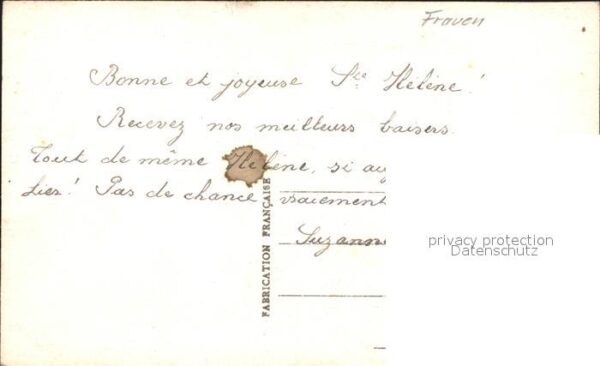 Frauen
Bonne et joyeuse Ste Hélène!
Recevez nos meilleurs baisers.
Tout de même Hélène, si
Pas de chance vraiment
Suzanne
FABRICATION FRANÇAISE
privacy protection
Datenschutz